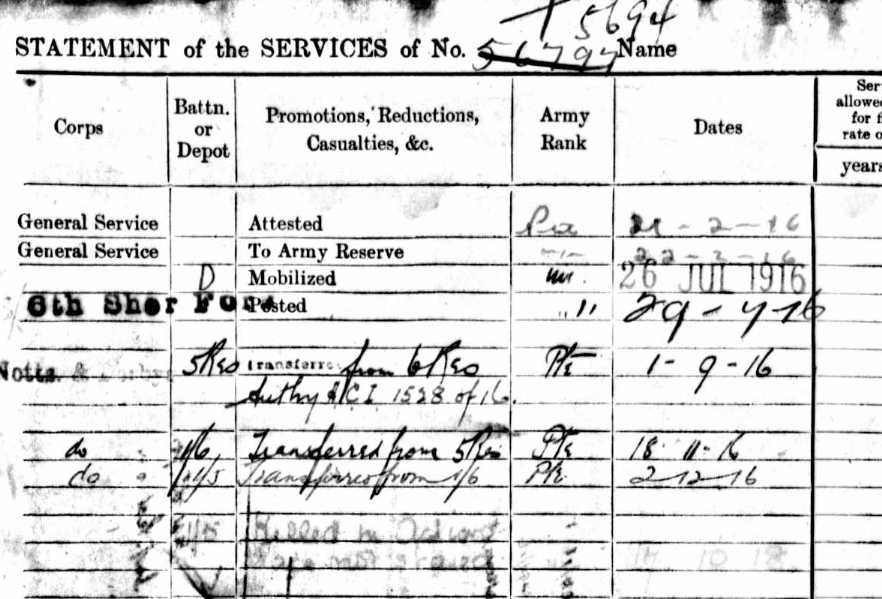 5694
STATEMENT of the SERVICES of No. 56797 Name
Corps
Battn. or Depot
Promotions, Reductions, Casualties, &c.
Army Rank
Dates
years
General Service Attested Pte 21-2-16
General Service To Army Reserve 22-2-16
D Mobilized " 26 JUL 1916
6th Sher For Posted " 29-7-16
Notts & Derby 5Res transferre from 6Res Pte 1-9-16
Authy ACI 1528 of 16.
do 1/6 Transferred from 5Res Pte 18 11-16
do 1/5 Transferred from 1/6 Pte 2-12-16
1/5 Killed in Action